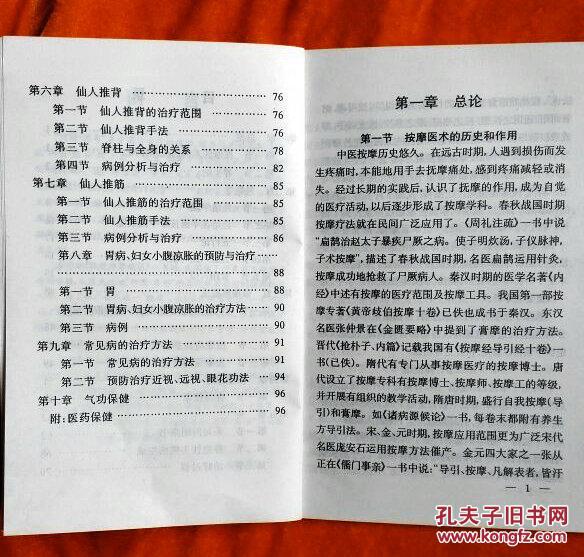 第六章 仙人推背 …… 76
第一节 仙人推背的治疗范围 …… 76
第二节 仙人推背手法 …… 76
第三节 脊柱与全身的关系 …… 78
第四节 病例分析与治疗 …… 82
第七章 仙人推筋 …… 85
第一节 仙人推筋的治疗范围 …… 85
第二节 仙人推筋手法 …… 85
第三节 病例分析与治疗 …… 86
第八章 胃病、妇女小腹凉胀的预防与治疗 ……
…… 88
第一节 胃 …… 88
第二节 胃病、妇女小腹凉胀的治疗方法 …… 90
第三节 病例 …… 90
第九章 常见病的治疗方法 …… 91
第一节 常见病的治疗方法 …… 91
第二节 预防治疗近视、远视、眼花功法 …… 94
第十章 气功保健 …… 96
附:医药保健 …… 96
第一章 总论
第一节 按摩医术的历史和作用
中医按摩历史悠久。在远古时期,人遇到损伤而发
生疼痛时,本能地用手去抚摩痛处,感到疼痛减轻或消
失。经过长期的实践后,认识了抚摩的作用,成为自觉
的医疗活动,以后逐步形成了按摩学科。春秋战国时期
按摩疗法就在民间广泛应用了。《周礼注疏》一书中说
“扁鹊治赵太子暴疾尸厥之病。使子明炊汤,子仪脉神,
子术按摩”,描述了春秋战国时期,名医扁鹊运用针灸,
按摩成功地抢救了尸厥病人。秦汉时期的医学名著《内
经》中述有按摩的医疗范围及按摩工具。我国第一部按
摩专著《黄帝歧伯按摩十卷》已佚也成书于秦汉。东汉
名医张仲景在《金匮要略》中提到了膏摩的治疗方法。
晋代《抢朴子、内篇》记载我国有《按摩经导引经十卷》一
书(已佚)。隋代有专门从事按摩医疗的按摩博士。唐
代设立了按摩专科有按摩博士、按摩师、按摩工的等级,
并开展有组织的教学活动,隋唐时期,盛行自我按摩(导
引)和膏摩。如《诸病源候论》一书,每卷末都附有养生
方导引法。宋、金、元时期,按摩应用范围更为广泛宋代
名医庞安石运用按摩方法催产。金元四大家之一张从
正在《儒门事亲》一书中说:“导引、按摩、凡解表者,皆汗
— 1 —
孔夫子旧书网
www.kongfz.com